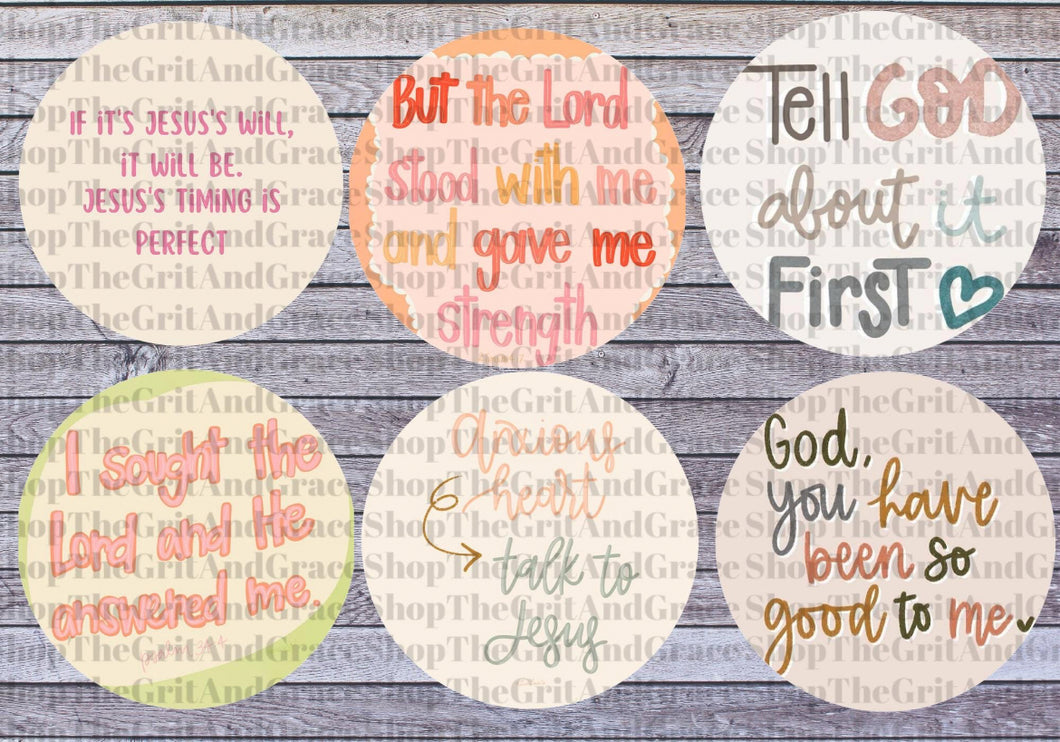 IF IT'S JESUS'S WILL,
IT WILL BE.
JESUS'S TIMING IS
PERFECT
But the Lord
stood with me
and gave me
strength
Tell GOD
about it
First
I sought the
Lord and He
answered me.
psalm 34:4
Anxious
heart
talk to
Jesus
God,
you have
been so
good to me
ShopTheGritAndGrace